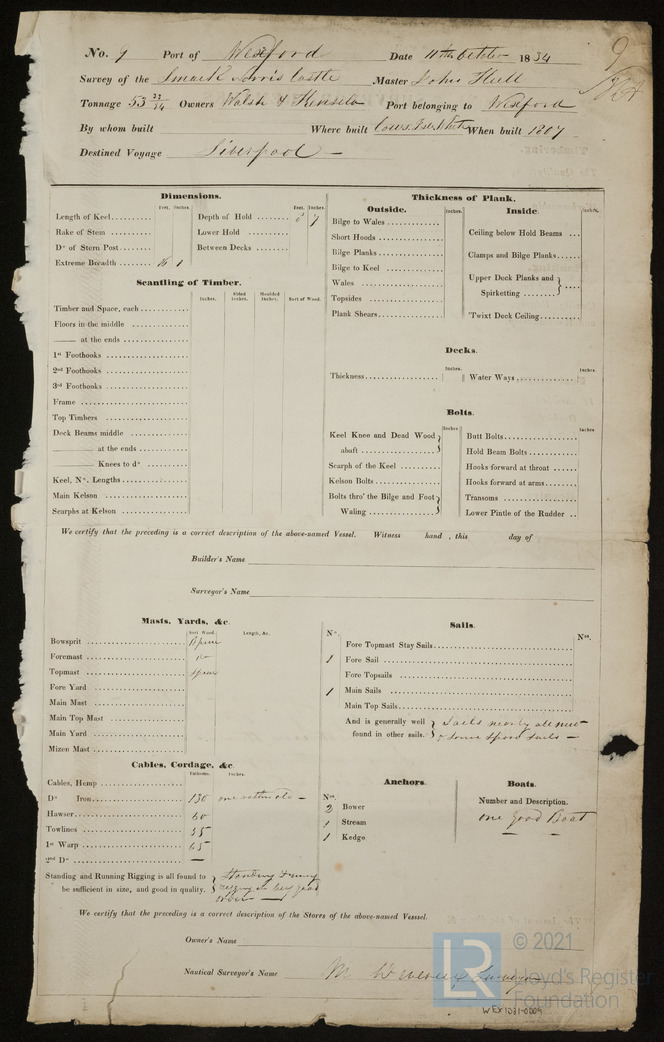 No. 9 Port of Wexford Date 11th October 1834
9
Survey of the Smack Norris Castle Master John
Tonnage 53 22/94 Owners Walsh & Kinsela Port belonging to Wexford
By whom built Where built Cowes, Isle When built 1807
Destined Voyage Liverpool —
Dimensions.
Feet. Inches. Feet. Inches.
Length of Keel Depth of Hold 8 7
Rake of Stem Lower Hold
Do of Stern Post Between Decks
Extreme Breadth 16 1
Scantling of Timber.
Inches. Sided Inches. Moulded Inches. Sort of Wood.
Timber and Space, each
Floors in the middle
—— at the ends
1st Foothooks
2nd Foothooks
3rd Foothooks
Frame
Top Timbers
Deck Beams middle
—— at the ends
—— Knees to do
Keel, No. Lengths
Main Kelson
Scarphs at Kelson
Thickness of Plank.
Outside. Inches. Inside. Inches.
Bilge to Wales
Short Hoods
Bilge Planks
Bilge to Keel
Wales
Topsides
Plank Shears
Ceiling below Hold Beams
Clamps and Bilge Planks
Upper Deck Planks and
Spirketting
'Twixt Deck Ceiling
Decks.
Inches. Inches.
Thickness Water Ways
Bolts.
Inches Inches
Keel Knee and Dead Wood
abaft
Scarph of the Keel
Kelson Bolts
Bolts thro' the Bilge and Foot
Waling
Butt Bolts
Hold Beam Bolts
Hooks forward at throat
Hooks forward at arms
Transoms
Lower Pintle of the Rudder
We certify that the preceding is a correct description of the above-named Vessel. Witness hand , this day of
Builder's Name
Surveyor's Name
Masts, Yards, &c.
Sort Wood. Length, &c.
Bowsprit Spruce
Foremast Do
Topmast Spruce
Fore Yard
Main Mast
Main Top Mast
Main Yard
Mizen Mast
Sails.
No. Nos.
Fore Topmast Stay Sails
1 Fore Sail
Fore Topsails
1 Main Sails
Main Top Sails
And is generally well found in other sails. Sails nearly all new
& some spare sails —
Cables, Cordage, &c.
Fathoms. Inches.
Cables, Hemp
Do Iron 130 one
Hawser 60
Towlines 55
1st Warp 65
2nd Do —
Standing and Running Rigging is all found to
be sufficient in size, and good in quality.
Standing & running
rigging in very good
order —
Anchors.
Nos.
2 Bower
1 Stream
1 Kedge
Boats.
Number and Description.
One good Boat
We certify that the preceding is a correct description of the Stores of the above-named Vesssel.
Owner's Name
Nautical Surveyor's Name M Surveyor
LR
© 2021
Lloyd's Register
Foundation
WEX1031-0009